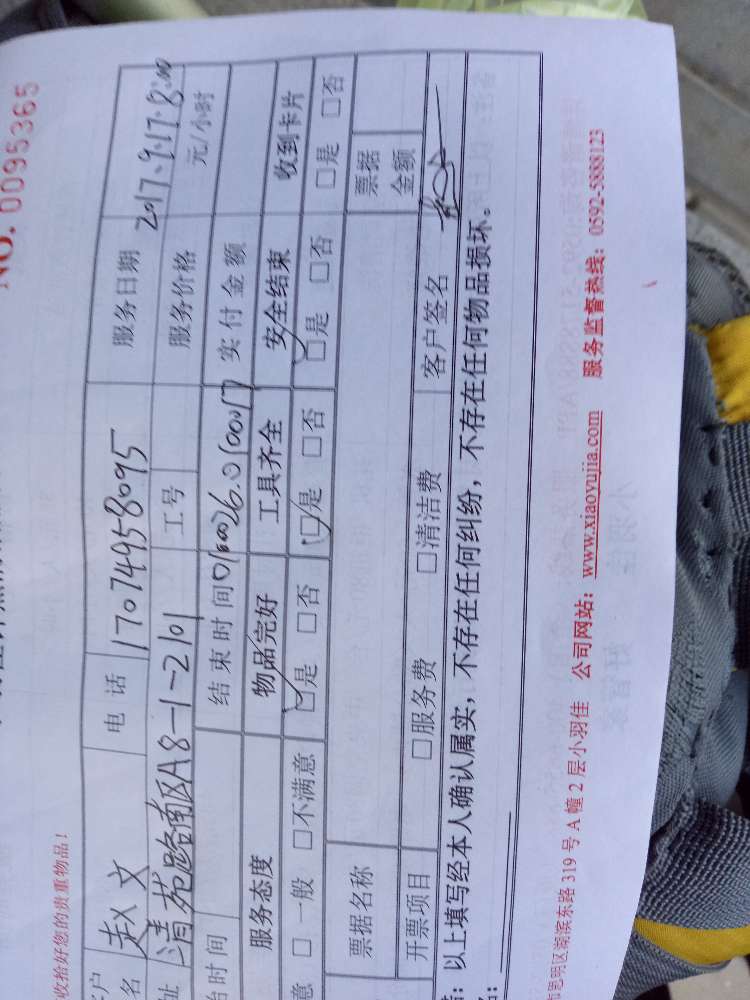 NO. 0095365
收拾好您的贵重物品！
户名 赵文 电话 17074958095 服务日期 2017.9.17.8:00
址 清苑路南区A8-1-2101 工号 服务价格 元/小时
始时间 结束时间 实付金额
服务态度 物品完好 工具齐全 安全结束 收到卡片
意 □一般 □不满意 □是 □否 □是 □否 □是 □否 □是 □否
票据名称 票据金额
开票项目 □服务费 □清洁费 客户签名
：以上填写经本人确认属实，不存在任何纠纷，不存在任何物品损坏。
名：
市思明区湖滨东路 319 号 A 幢 2 层小羽佳 公司网站：www.xiaoyujia.com 服务监督热线：0592-5888123